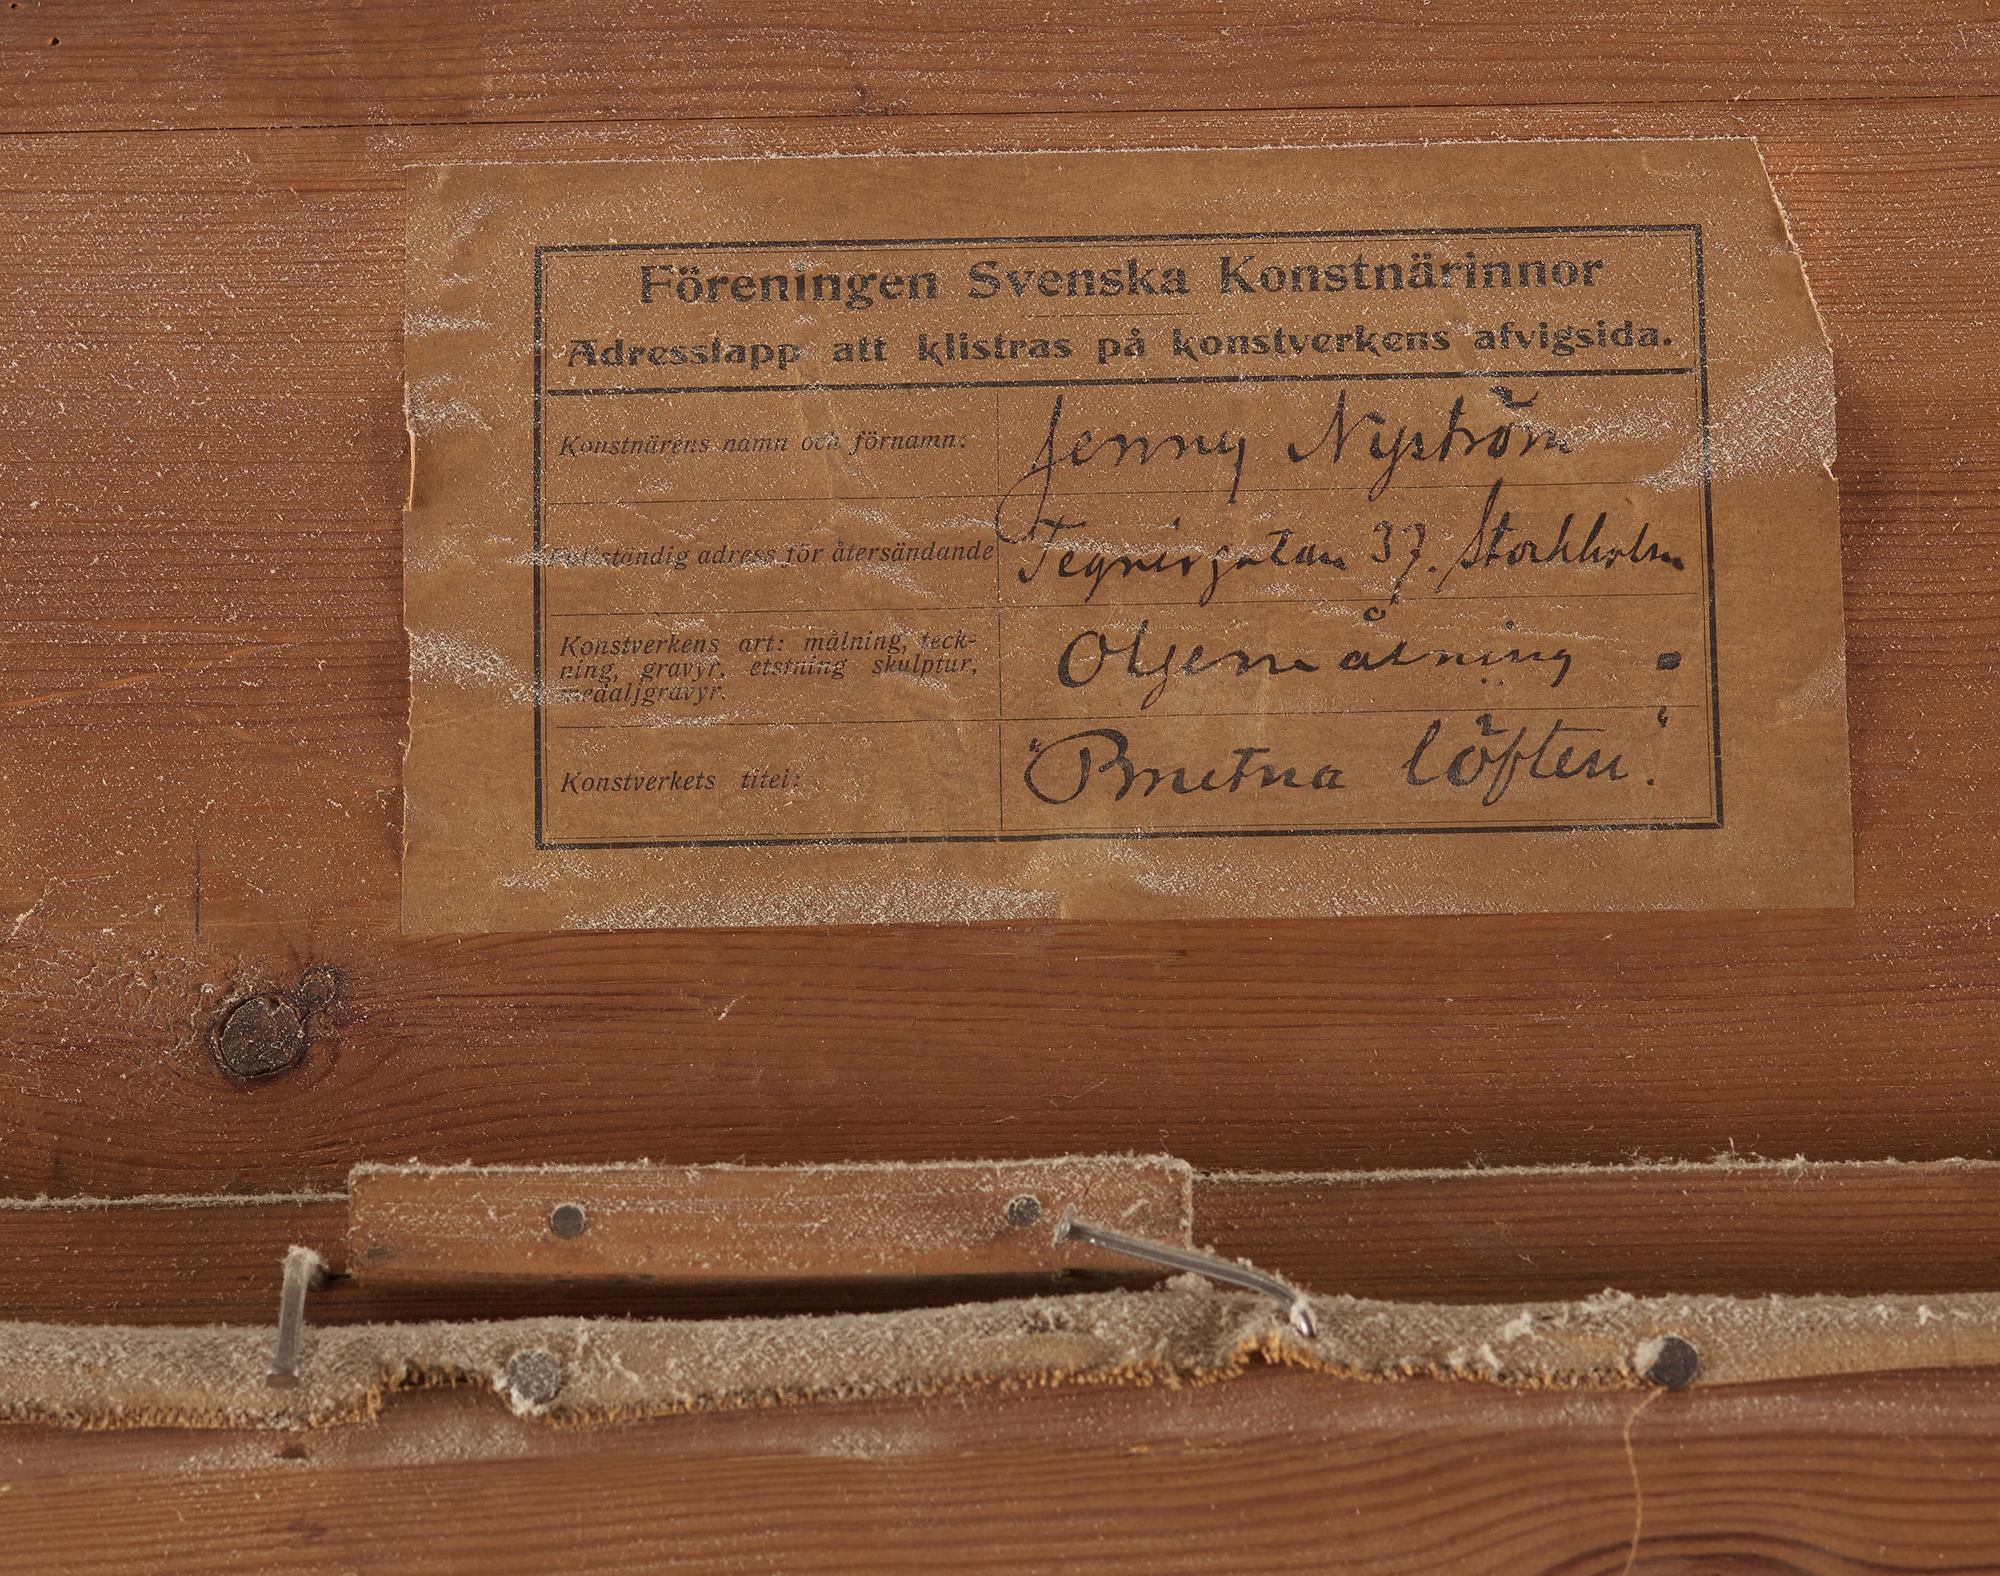 Föreningen Svenska Konstnärinnor
Adresslapp att klistras på konstverkens afvigsida.
Konstnärens namn och förnamn: Jenny Nyström
Fullständig adress för återsändande Tegnérgatan 37. Stockholm
Konstverkens art: målning, teck-
ning, gravyr, etstning skulptur,
medaljgravyr.
Oljemålning
Konstverkets titel: "Brustna löften."